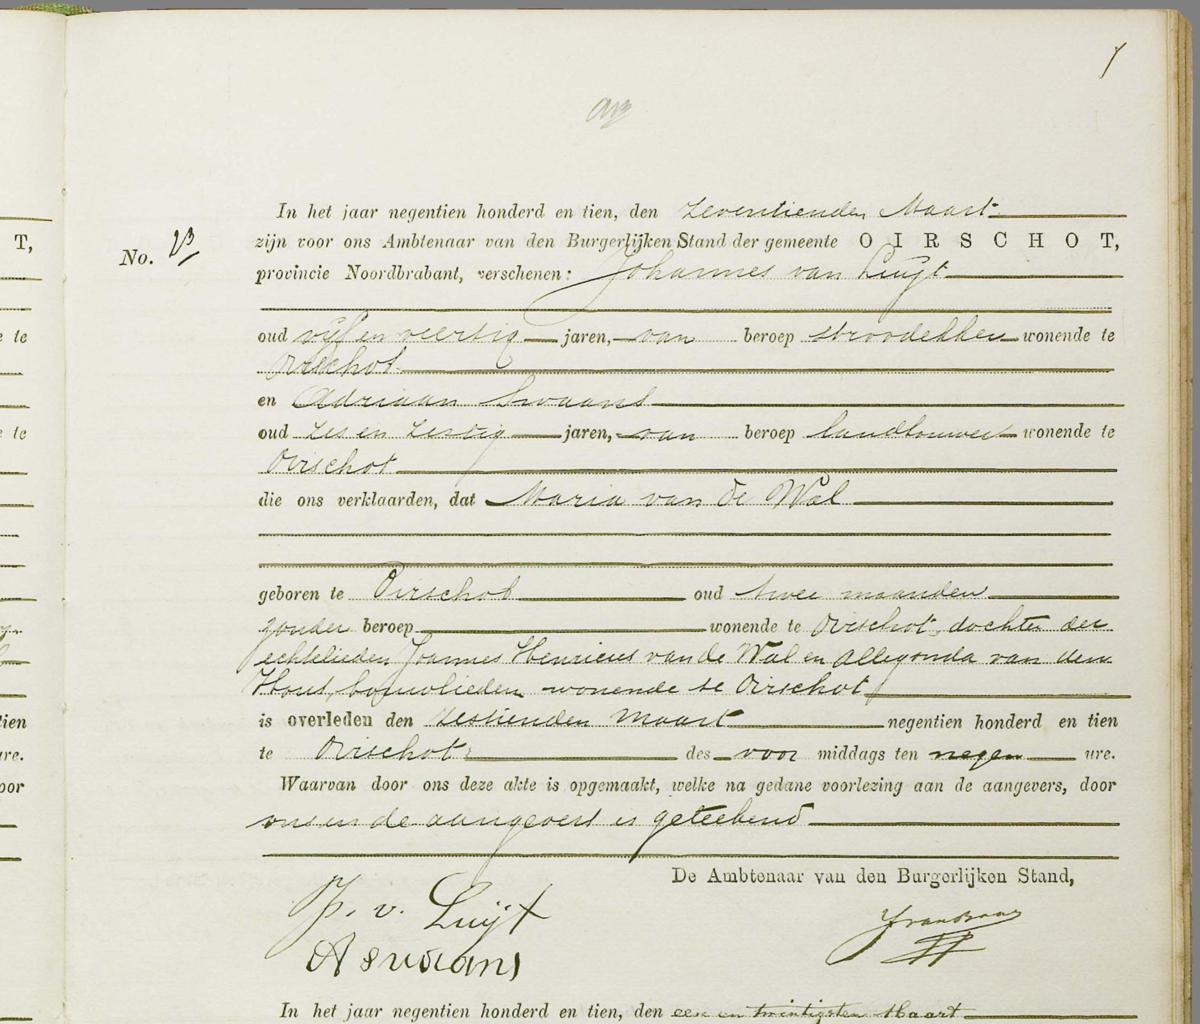 In het jaar negentien honderd en tien, den zeventienden Maart
No. 23 zijn voor ons Ambtenaar van den Burgerlijken Stand der gemeente OIRSCHOT,
provincie Noordbrabant, verschenen: Johannes van Luijt
oud vijf en veertig jaren, van beroep stroodekker wonende te
Oirschot
en Adriaan Swaans
oud zes en zestig jaren, van beroep landbouwer wonende te
Oirschot
die ons verklaarden, dat Maria van de Wal
geboren te Oirschot oud twee maanden
zonder beroep wonende te Oirschot, dochter der
echtelieden Joannes Henricus van de Wal en Allegonda van den
Hout, bouwlieden wonende te Oirschot
is overleden den zestienden Maart negentien honderd en tien
te Oirschot des voor middags ten negen ure.
Waarvan door ons deze akte is opgemaakt, welke na gedane voorlezing aan de aangevers, door
ons en de aangevers is geteekend
De Ambtenaar van den Burgerlijken Stand,
J. v. Luijt
A swaans
In het jaar negentien honderd en tien, den een en twintigsten Maart
T,
te
te
tien
ure.
oor